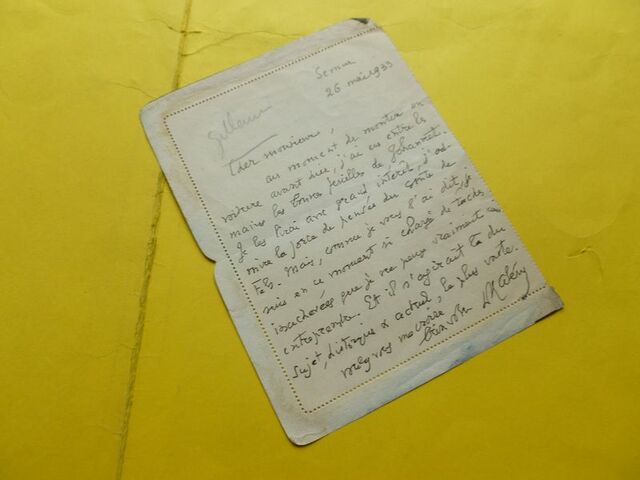 Semur
26 mai 1933
Cher monsieur,
au moment de monter en
voiture avant hier, j'ai eu entre les
mains les bonnes feuilles de Johannet.
Je les lirai avec grand intérêt, j'ad-
mire la force de pensée du comte de
Fels. Mais, comme je vous l'ai dit, je
suis en ce moment si chargé de tâches
inachevées que je ne peux vraiment
entreprendre. Et il s'agirait là du
sujet, historique & actuel, le plus vaste.